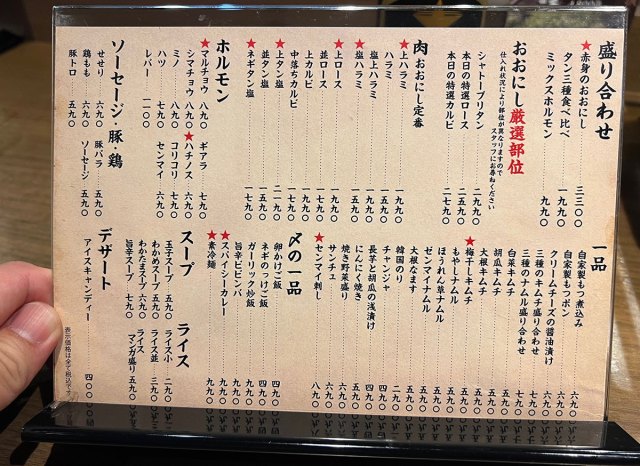 盛り合わせ
★赤身のおおにし 三三〇〇
タン三種食べ比べ 一九九〇
ミックスホルモン 九九〇
おおにし厳選部位
仕入れ状況により部位が異なりますので
スタッフにお尋ねください
シャトーブリアン 二九九〇
本日の特選ロース
本日の特選カルビ
肉おおにし定番
★上ハラミ 一九九〇
ハラミ
塩上ハラミ
★塩ハラミ
★上ロース
並ロース
上カルビ
中落ちカルビ
★上タン塩
並タン塩
★ネギタン塩
ホルモン
★マルチョウ 八九〇
シマチョウ 八九〇
ミノ 八九〇
ハツ 七九〇
レバー 一一〇〇
ギアラ 七九〇
★ハチノス 六九〇
コリコリ 七九〇
センマイ 六九〇
ソーセージ・豚・鶏
せせり 六九〇
鶏もも 六九〇
豚トロ 五九〇
豚バラ 五九〇
ソーセージ 五九〇
一品
自家製もつ煮込み 六九〇
自家製もつポン 六九〇
クリームチーズの醤油漬け 六九〇
三種のキムチ盛り合わせ
三種のナムル盛り合わせ
白菜キムチ
胡瓜キムチ
大根キムチ
★梅干しキムチ
もやしナムル
ほうれん草ナムル
ゼンマイナムル
大根なます
韓国のり
チャンジャ
長芋と胡瓜の浅漬け
にんにく焼き
焼き野菜盛り
サンチュ
★センマイ刺し 八九〇
〆の一品
卵かけご飯 四九〇
ネギのっけご飯 四九〇
ガーリック炒飯
旨辛ビビンバ
★スパイシーカレー
★素冷麺 九九〇
スープ
玉子スープ 五九〇
わかめスープ 五九〇
わかたまスープ 六九〇
旨辛スープ 七九〇
ライス
ライス小 二九〇
ライス並 三九〇
マンガ盛り 五九〇
デザート
アイスキャンディー 四〇〇
表示価格は全て税込です。